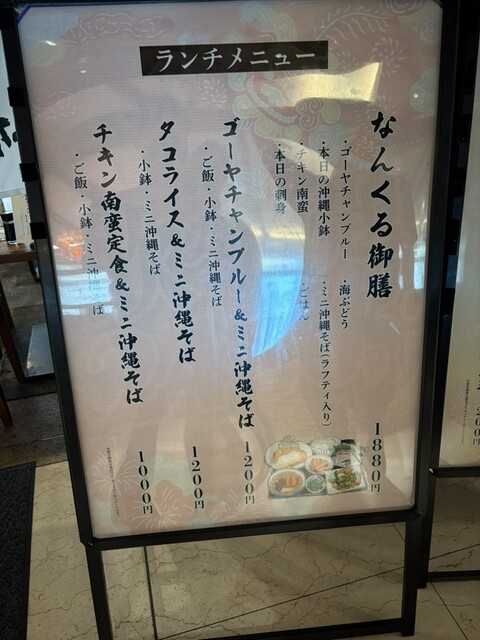 ランチメニュー
なんくる御膳
・ゴーヤチャンプルー
・海ぶどう
・本日の沖縄小鉢
・ミニ沖縄そば(ラフティ入り)
・チキン南蛮
・ごはん
・本日の刺身
1880円
ゴーヤチャンプルー&ミニ沖縄そば
・ご飯・小鉢・ミニ沖縄そば
1200円
タコライス&ミニ沖縄そば
・小鉢・ミニ沖縄そば
1200円
チキン南蛮定食&ミニ沖縄そば
・ご飯・小鉢・ミニ沖縄そば
1000円